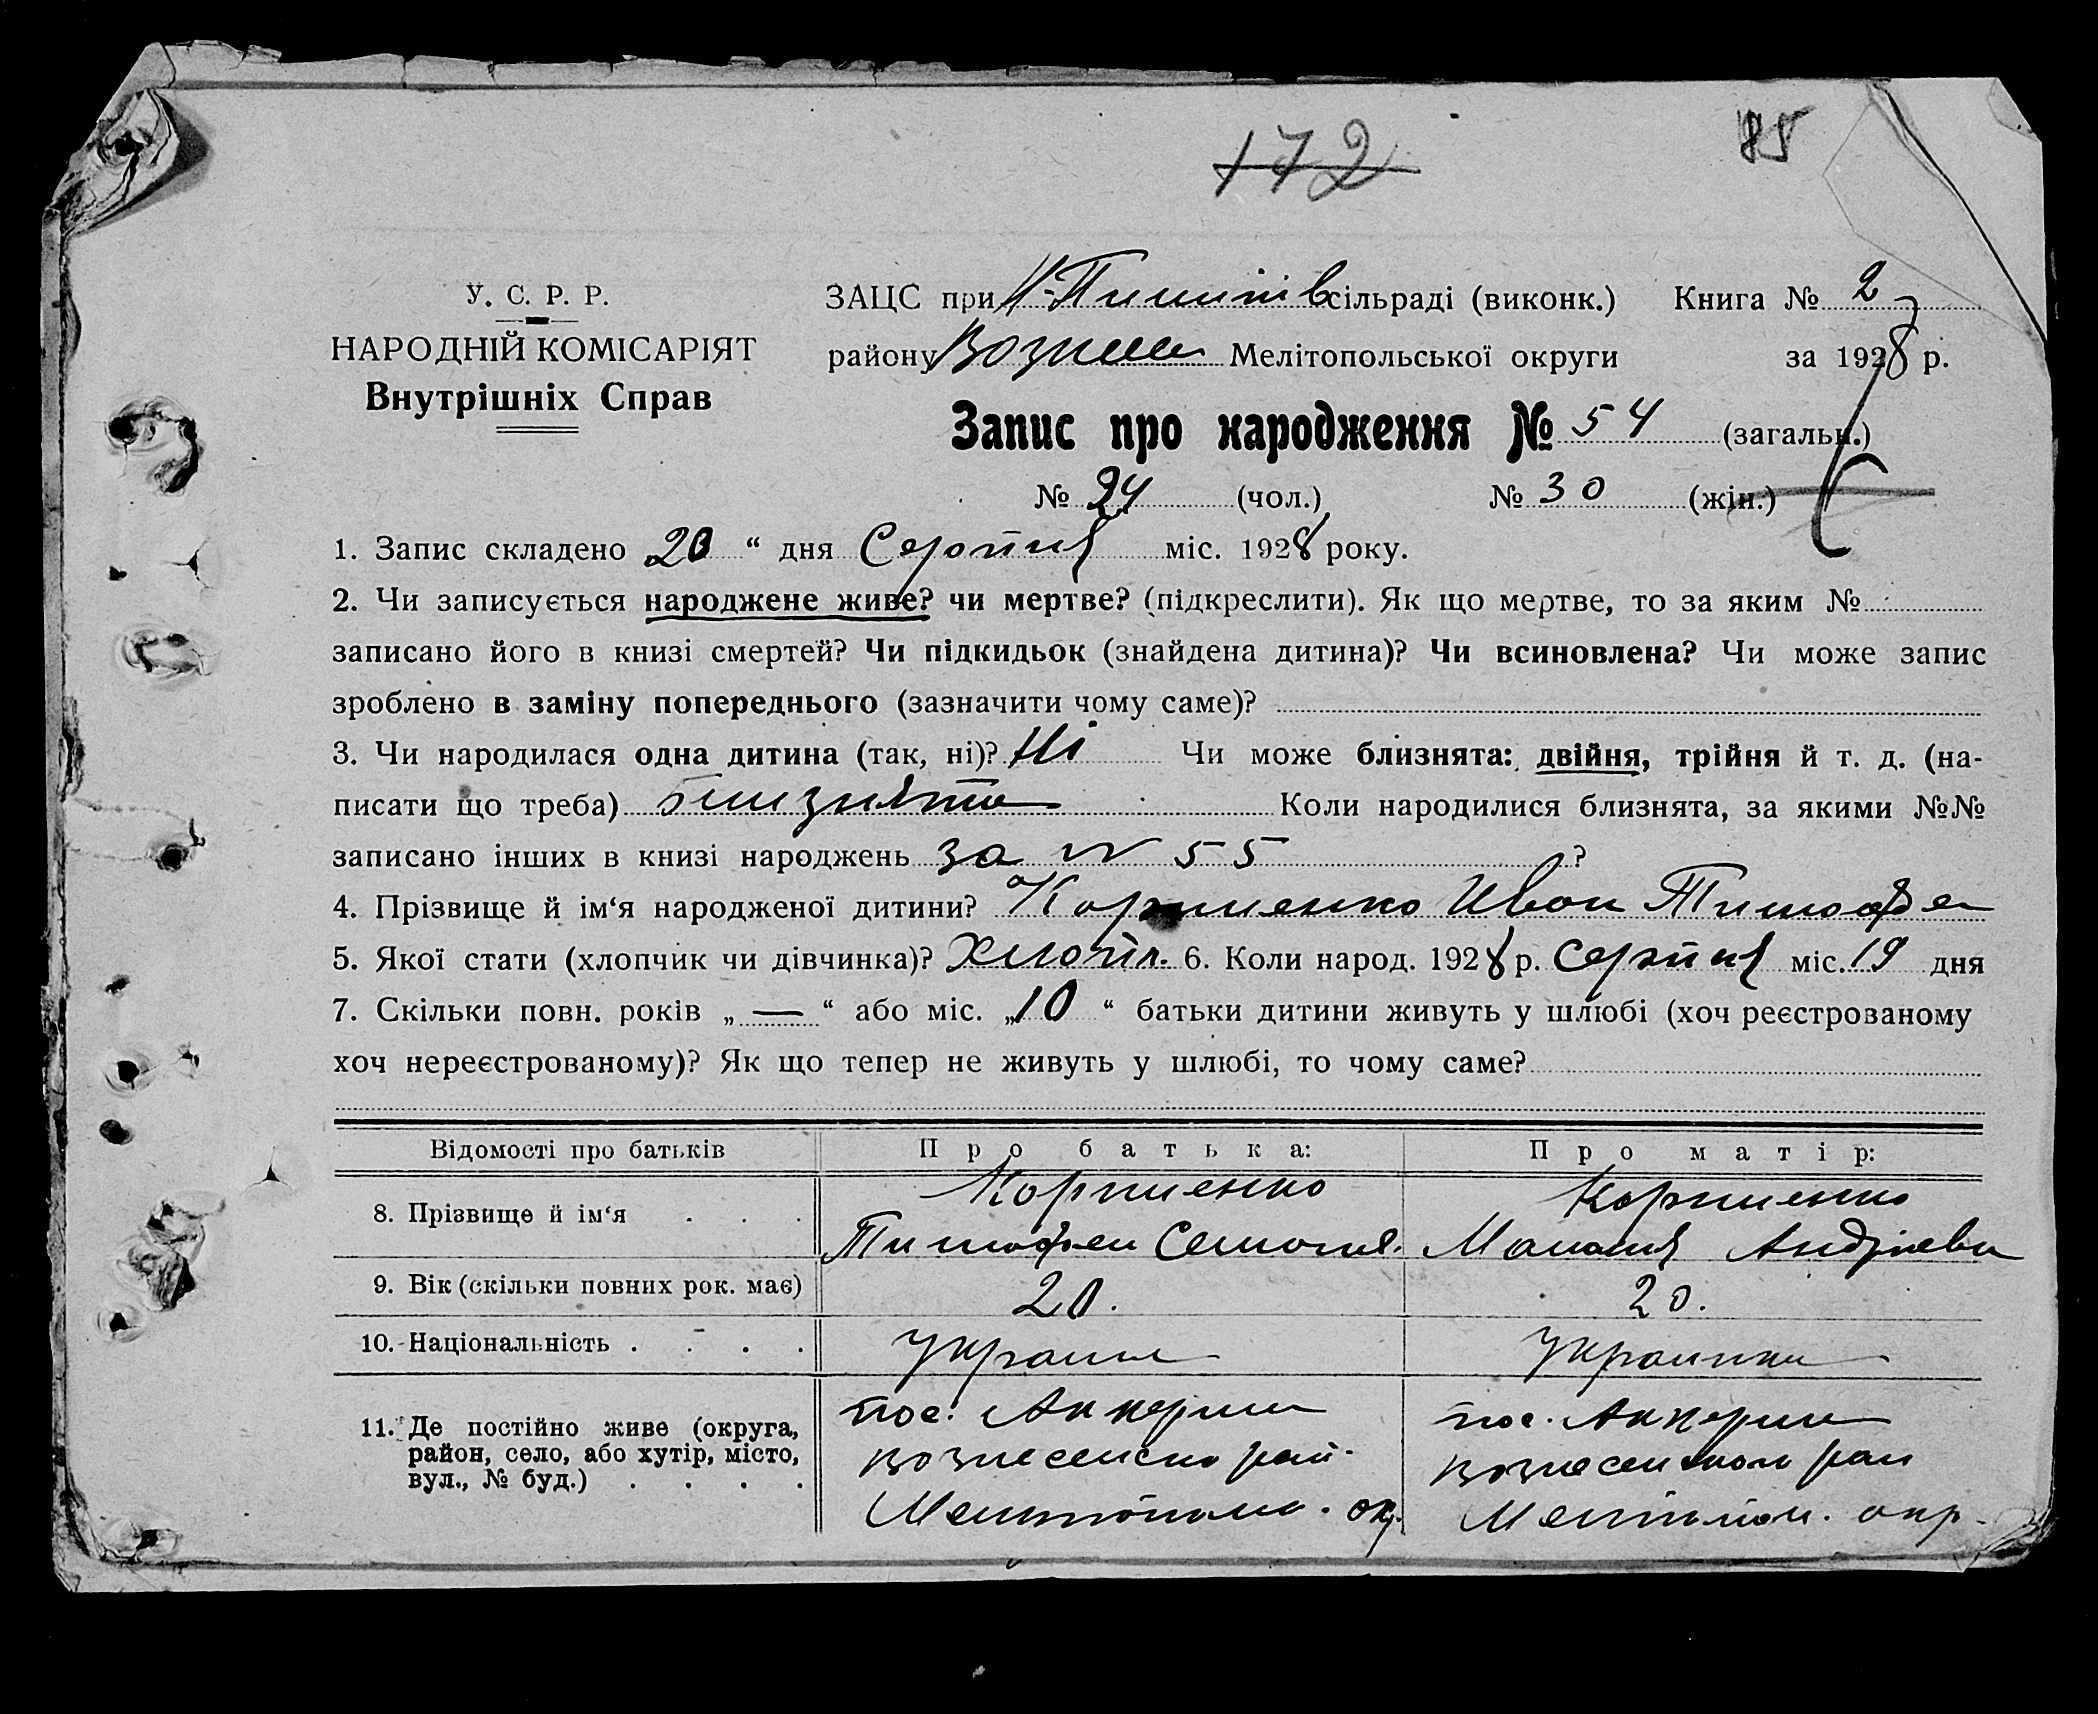 172
85
У. С. Р. Р.
НАРОДНІЙ КОМІСАРІЯТ
Внутрішніх Справ
ЗАЦС при сільраді (виконк.) Книга № 2
району Вознесе Мелітопольської округи за 1928 р.
Запис про народження № 54 (загальн.)
№ 24 (чол.) № 30 (жін.)
1. Запис складено 20 “ дня Серпня міс. 1928 року.
2. Чи записується народжене живе? чи мертве? (підкреслити). Як що мертве, то за яким №
записано його в книзі смертей? Чи підкидьок (знайдена дитина)? Чи всиновлена? Чи може запис
зроблено в заміну попереднього (зазначити чому саме)?
3. Чи народилася одна дитина (так, ні)? Ні Чи може близнята: двійня, трійня й т. д. (на-
писати що треба) близнята Коли народилися близнята, за якими №№
записано інших в книзі народжень за № 55 ?
4. Прізвище й ім‘я народженої дитини? Корниенко Иван Тимофе
5. Якої стати (хлопчик чи дівчинка)? Хлопч. 6. Коли народ. 1928 р. Серпня міс. 19 дня
7. Скільки повн. років „ — “ або міс. „ 10 “ батьки дитини живуть у шлюбі (хоч реєстрованому
хоч нереєстрованому)? Як що тепер не живуть у шлюбі, то чому саме?
Відомості про батьків Про батька: Про матір:
8. Прізвище й ім‘я Корниенко Корниенко
Тимофеи Семонов. Андріевн
9. Вік (скільки повних рок. має) 20. 20.
10. Національність Украин Украинка
11. Де постійно живе (округа, район, село, або хутір, місто, вул., № буд.)
пос. Аккерман пос. Аккерман
вознесенско рай вознесенском рай
Мелитополь. ок. Мелитопол. окр.